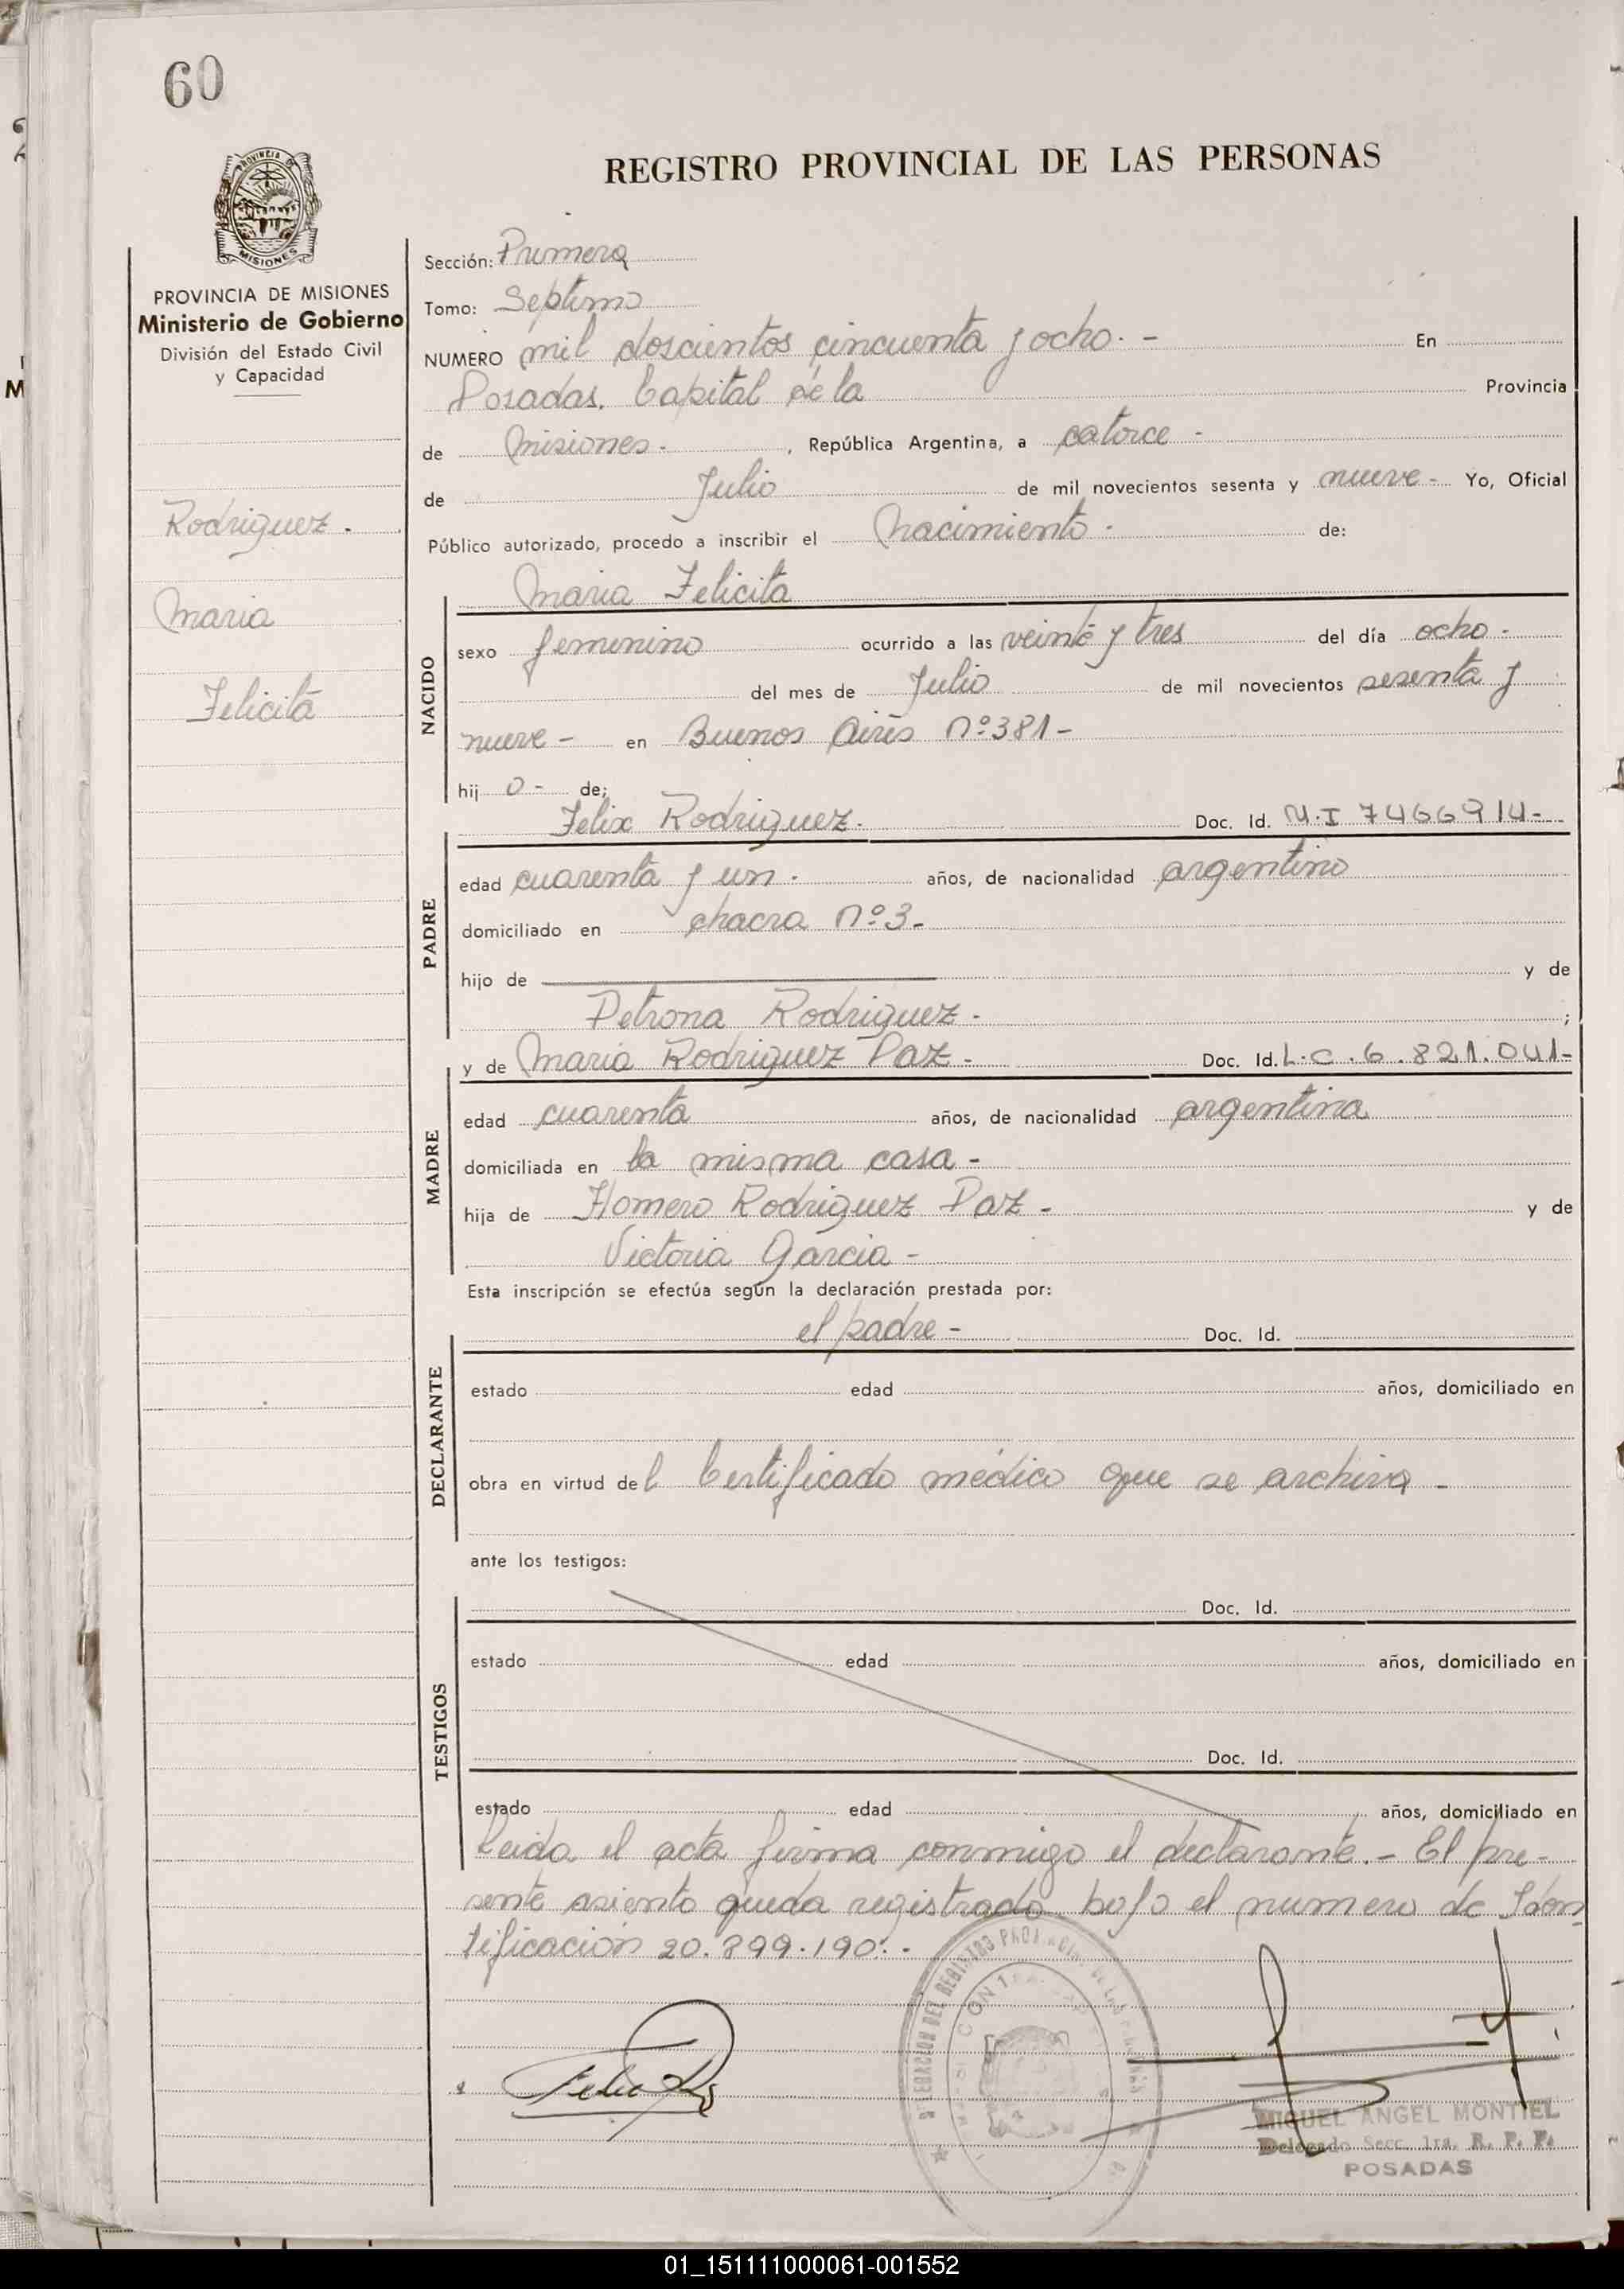 60
PROVINCIA DE
MISIONES
REGISTRO PROVINCIAL DE LAS PERSONAS
PROVINCIA DE MISIONES
Ministerio de Gobierno
División del Estado Civil
y Capacidad
Rodriguez.
Maria
Felicita
Sección: Primera
Tomo: Septimo
NUMERO mil doscientos cincuenta y ocho. - En
Posadas. Capital de la Provincia
de Misiones. , República Argentina, a catorce -
de Julio de mil novecientos sesenta y nueve - Yo, Oficial
Público autorizado, procedo a inscribir el Nacimiento - de:
Maria Felicita
NACIDO
sexo femenino ocurrido a las veinte y tres del día ocho -
del mes de Julio de mil novecientos sesenta y
nueve - en Buenos Aires Nº 381 -
hij o - de;
Felix Rodriguez. Doc. Id. M.I 7466914-
PADRE
edad cuarenta y un - años, de nacionalidad argentino
domiciliado en chacra Nº 3 -
hijo de y de
Petrona Rodriguez - ;
y de Maria Rodriguez Paz - Doc. Id. L.C. 6.821.041-
MADRE
edad cuarenta años, de nacionalidad argentina
domiciliada en la misma casa -
hija de Homero Rodriguez Paz - y de
Victoria Garcia -
Esta inscripción se efectúa según la declaración prestada por:
el padre - Doc. Id.
DECLARANTE
estado edad años, domiciliado en
obra en virtud del Certificado médico que se archiva -
ante los testigos:
TESTIGOS
Doc. Id.
estado edad años, domiciliado en
Doc. Id.
estado edad años, domiciliado en
Leida el acta firma conmigo el declarante. - El pre-
sente asiento queda registrado bajo el numero de Iden
tificación 20.899.190. -
MIGUEL ANGEL MONTIEL
Delegado Secc. 1ra. R. P. P.
POSADAS
01_151111000061-001552